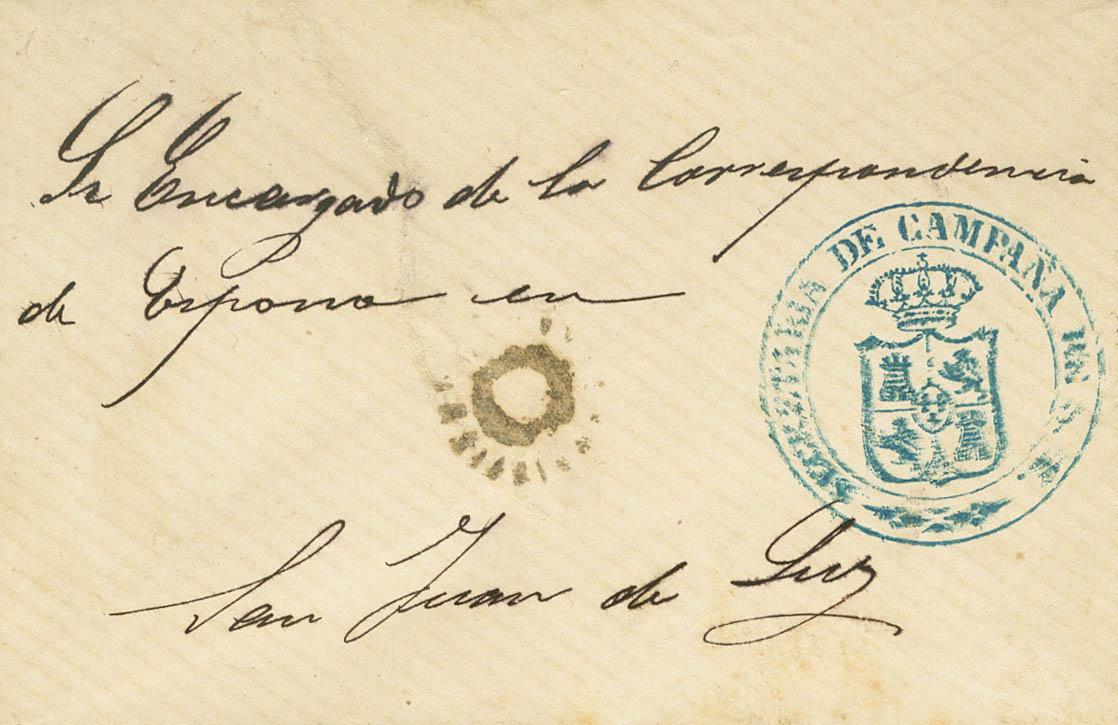 Sr Encargado de la Correspondencia
de España en
San Juan de Luz
SECRETARIA DE CAMPAÑA DE S. M.